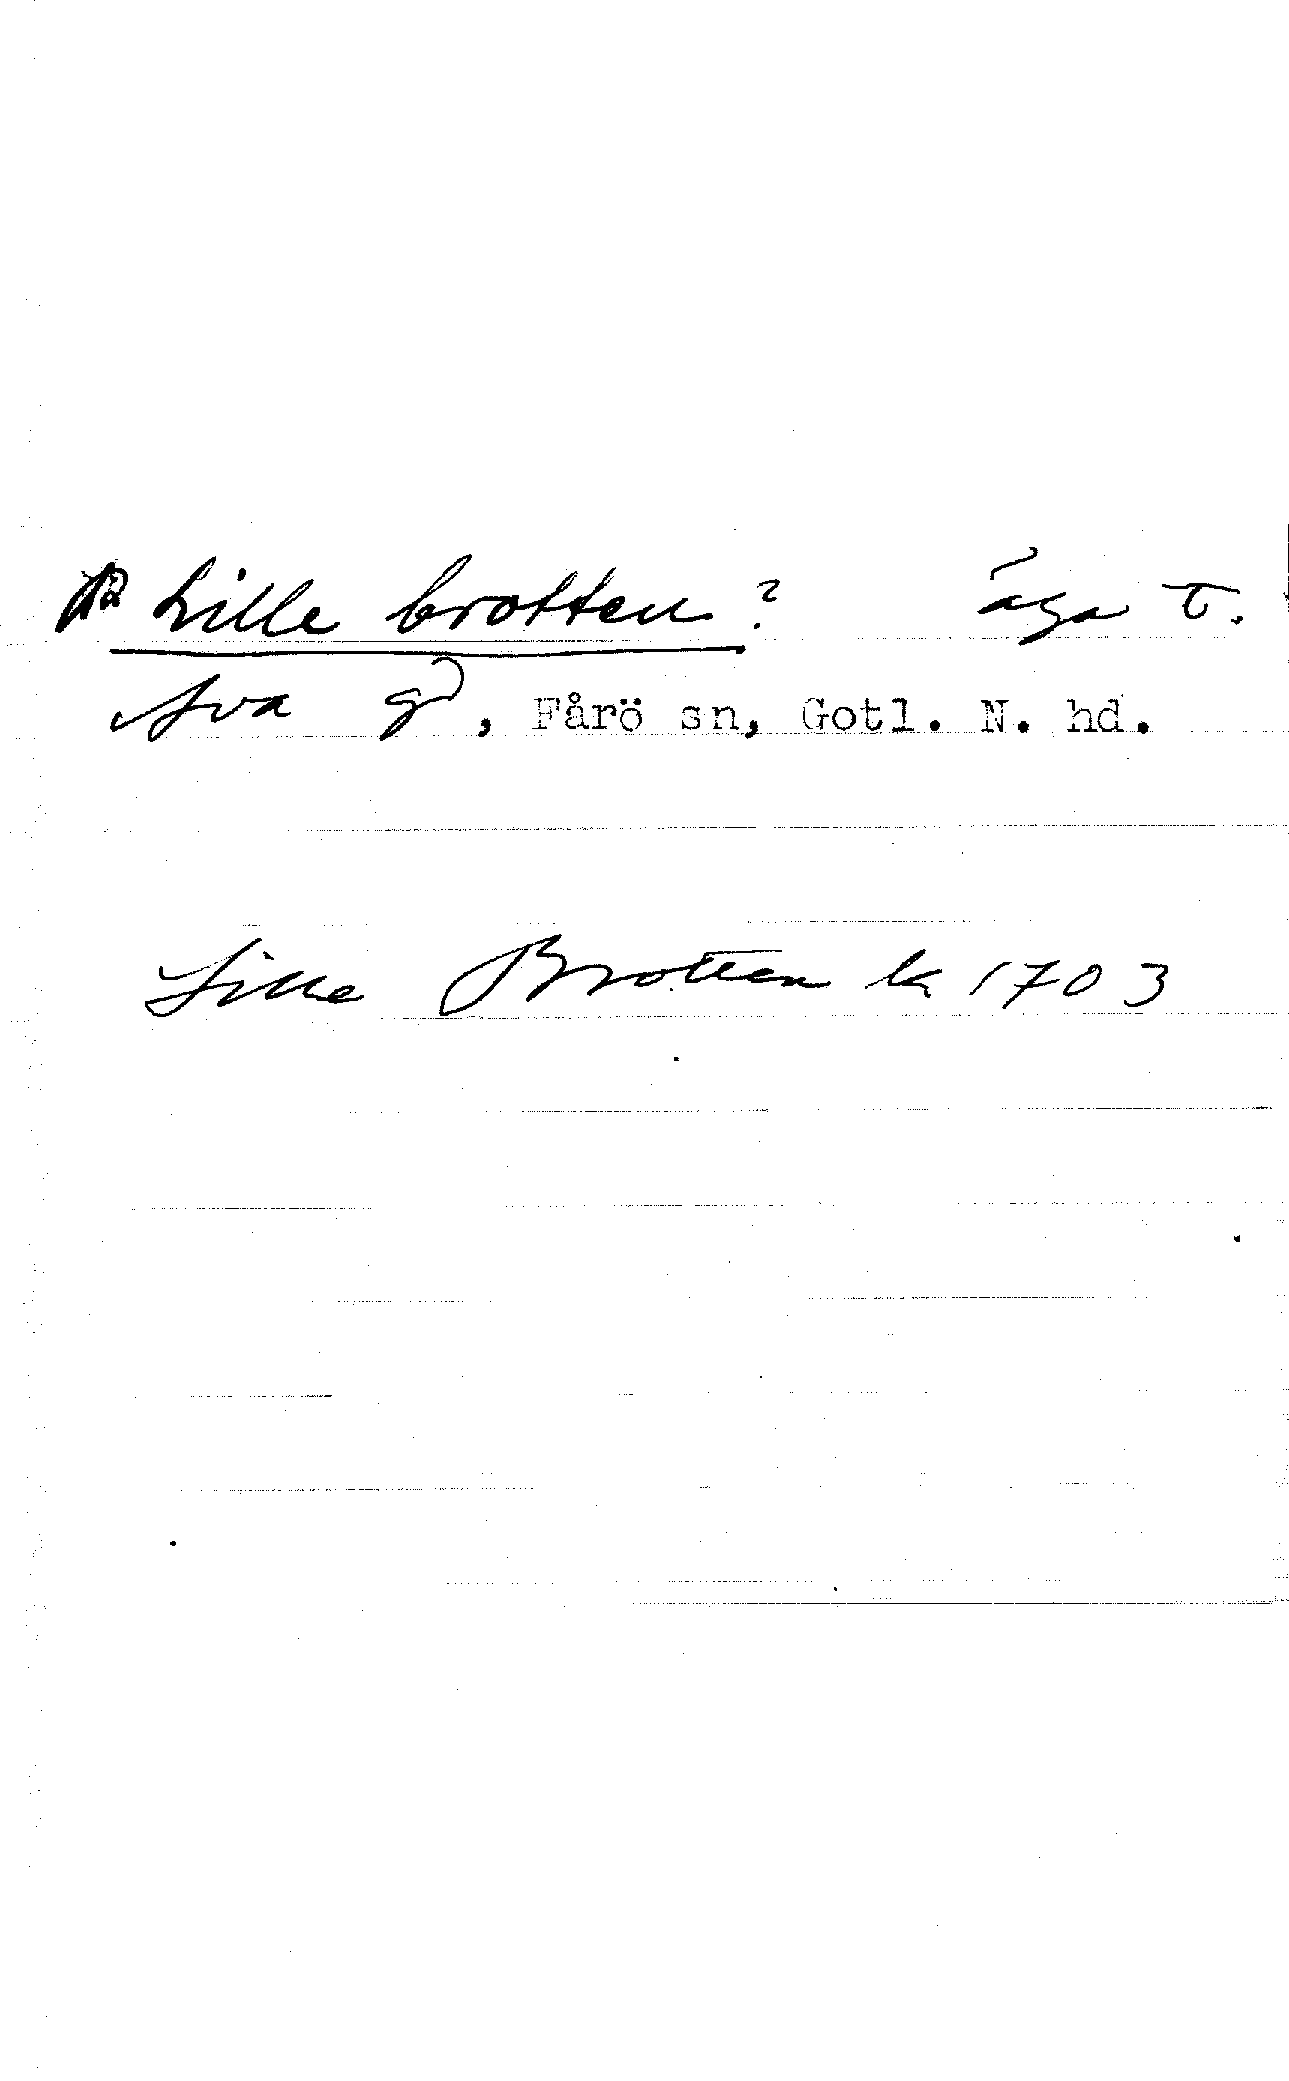 Lille brotten? åga T.
Ava gd, Fårö sn, Gotl. N. hd.
Lille Brotten k 1703